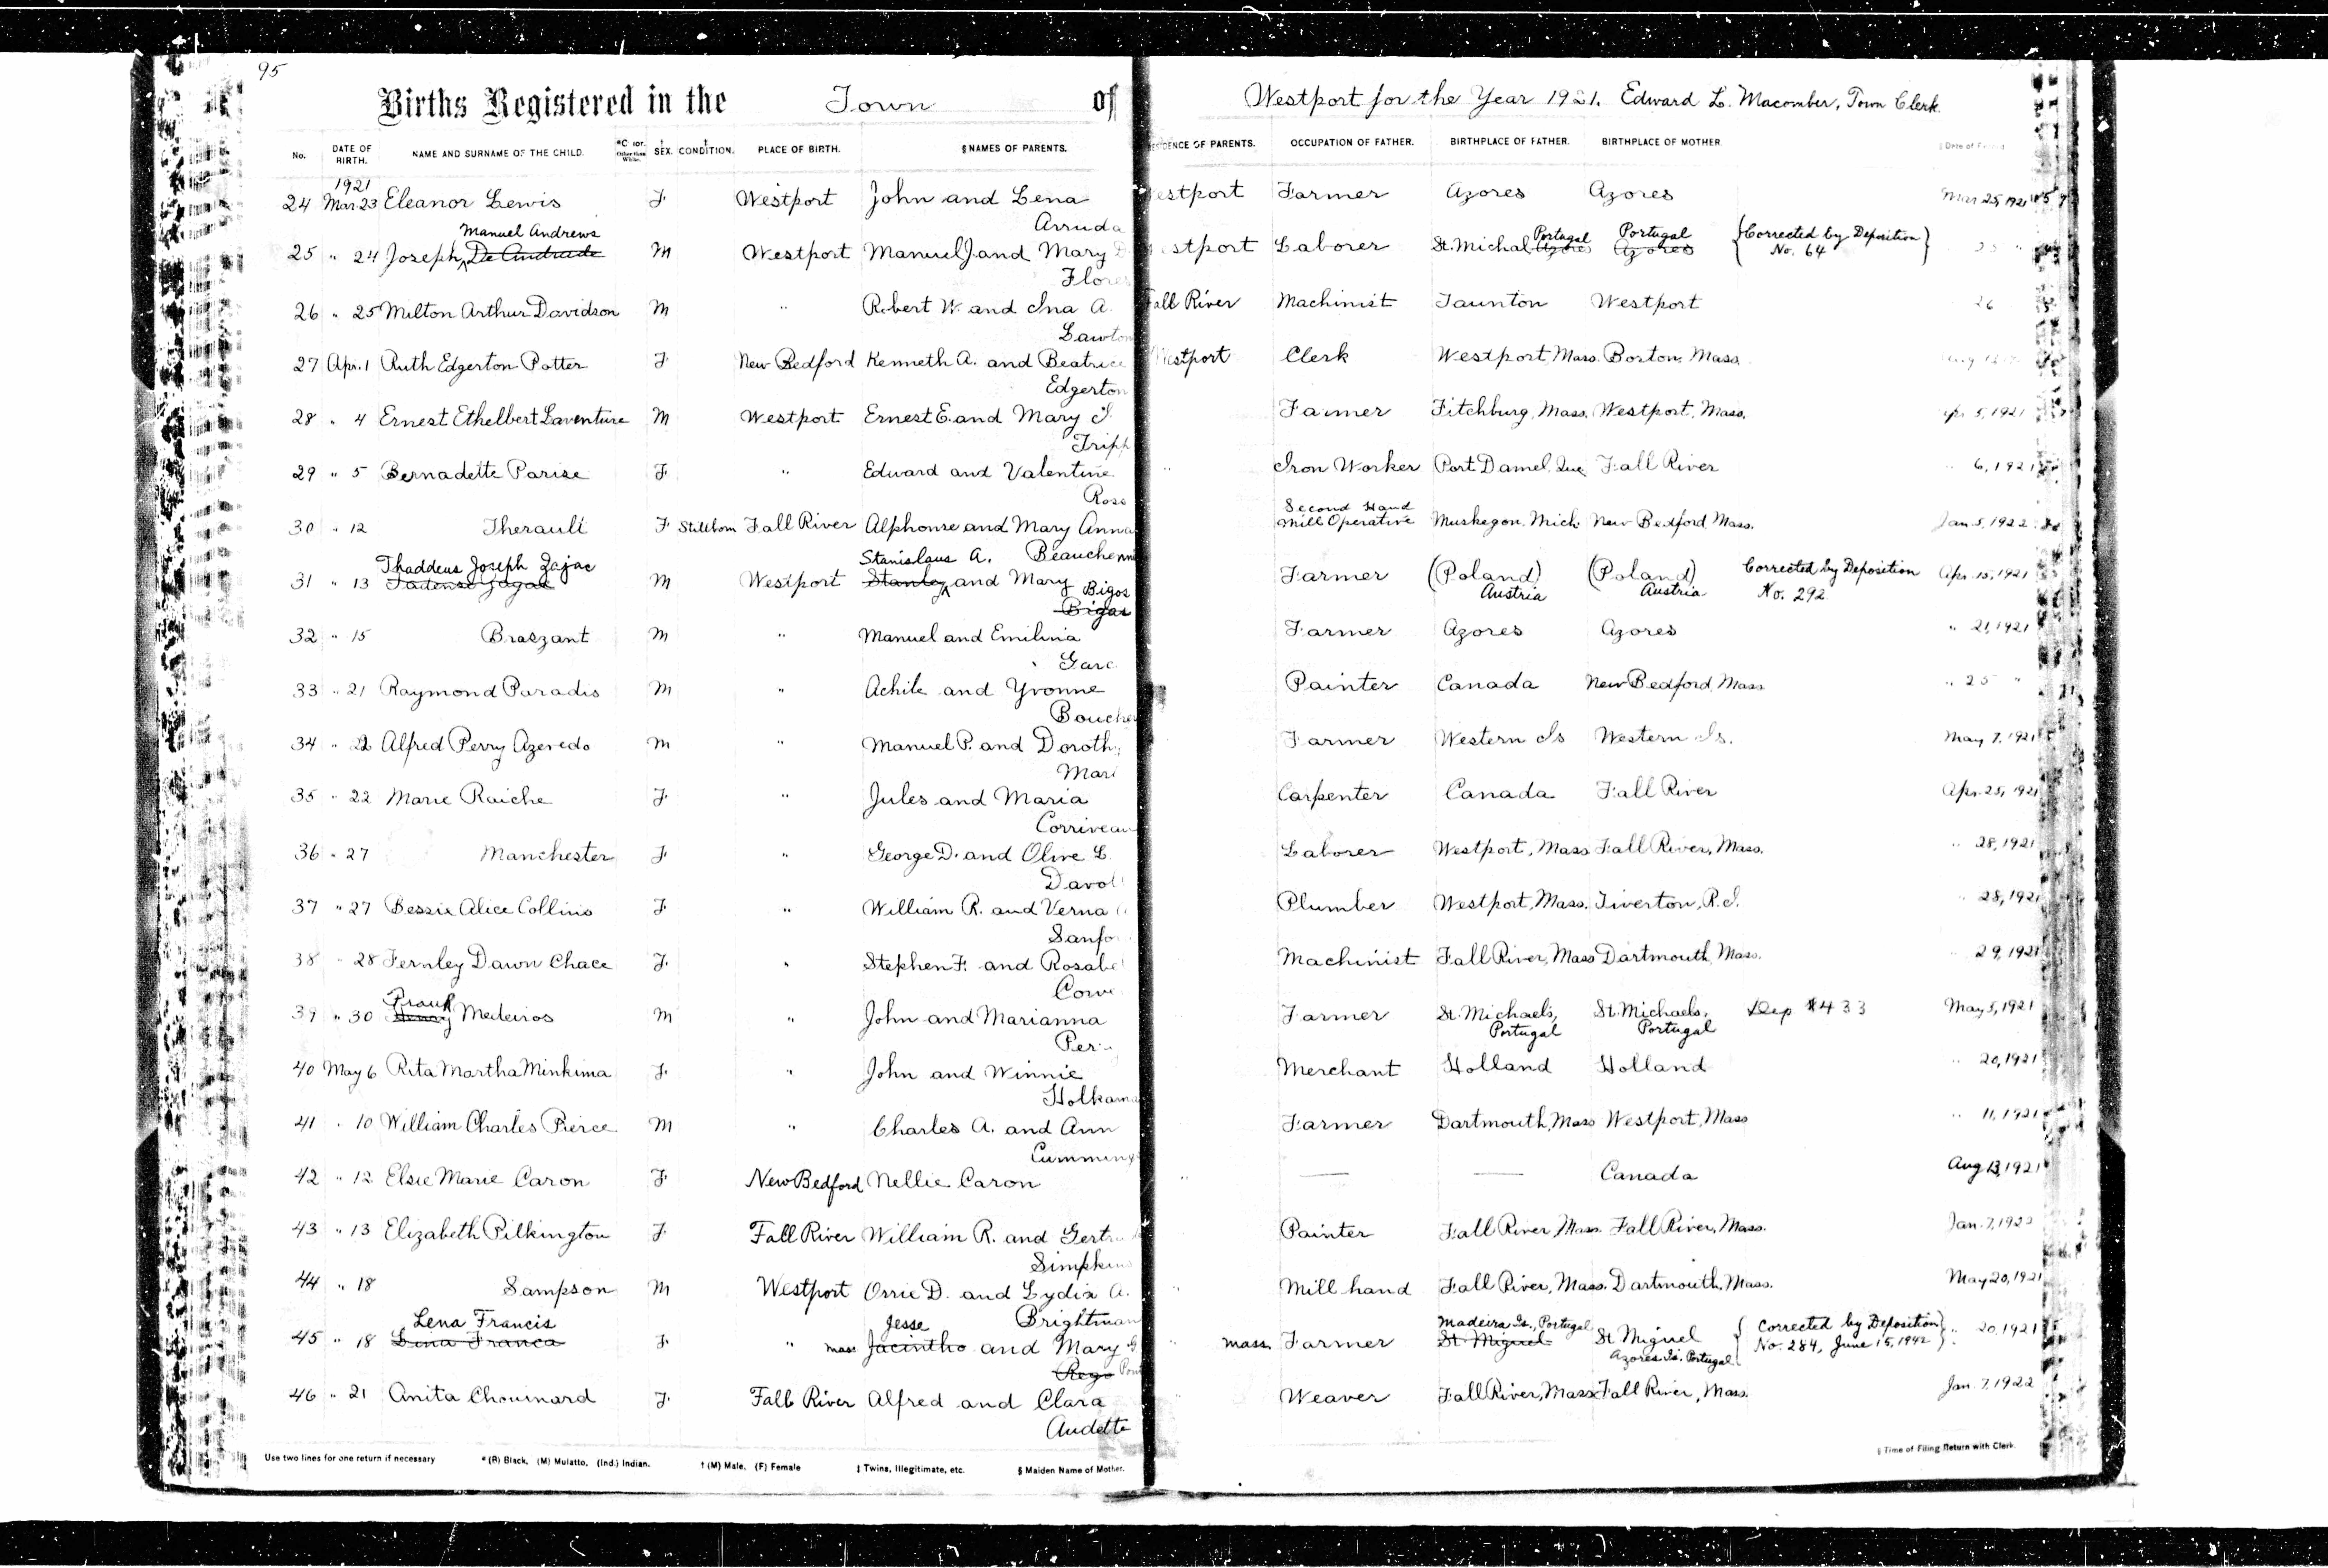 95
Births Registered in the Town of Westport for the Year 1921. Edward L. Macomber, Town Clerk.
No. DATE OF BIRTH. NAME AND SURNAME OF THE CHILD. *Color. Other than White. † SEX. ‡ CONDITION. PLACE OF BIRTH. § NAMES OF PARENTS. DENCE OF PARENTS. OCCUPATION OF FATHER. BIRTHPLACE OF FATHER. BIRTHPLACE OF MOTHER.
1921
24 Mar 23 Eleanor Lewis F. Westport John and Lena estport Farmer Azores Azores Mar 25, 1921
Arruda
Manuel Andrews Portugal Portugal
25 " 24 Joseph De Andrade M Westport Manuel J. and Mary stport Laborer St. Michal Azores Azores {Corrected by Deposition No. 64}
Flores
26 " 25 Milton Arthur Davidson M " Robert W. and Ina A. Fall River Machinist Taunton Westport 26
Lawton
27 Apr. 1 Ruth Edgerton Potter F. New Bedford Kenneth A. and Beatrice Westport Clerk Westport, Mass. Boston, Mass.
Edgerton
28 " 4 Ernest Ethelbert Laventure M Westport Ernest E. and Mary J. Farmer Fitchburg, Mass. Westport, Mass. Apr. 5, 1921
Tripp
29 " 5 Bernadette Parise F. " Edward and Valentine " Iron Worker Port Daniel, Que Fall River " 6, 1921
Ross
Second Hand
30 " 12 Therault F Stillborn Fall River Alphonse and Mary Anna Mill Operative Muskegon, Mich. New Bedford, Mass. Jan. 5, 1922
Beauchemin
Thaddeus Joseph Zajac Stanislaus A.
31 " 13 M Westport Stanley and Mary Bigos Farmer (Poland) Austria (Poland) Austria Corrected by Deposition No. 292 Apr. 15, 1921
Bigas
32 " 15 Braszant M " Manuel and Emilina Farmer Azores Azores " 21, 1921
Garc
33 " 21 Raymond Paradis M " Achile and Yvonne Painter Canada New Bedford, Mass " 25 "
Boucher
34 " 22 Alfred Perry Azevedo M " Manuel P. and Doroth Farmer Western Is Western Is. May 7, 1921
Mari
35 " 22 Marie Raiche F. " Jules and Maria Carpenter Canada Fall River Apr. 25, 1921
Corriveau
36 " 27 Manchester F. " George D. and Olive L. Laborer Westport, Mass Fall River, Mass. " 28, 1921
Davol
37 " 27 Bessie Alice Collins F. " William R. and Verna Plumber Westport, Mass. Tiverton, R.I. " 28, 1921
Sanfo
38 " 28 Fernley Dawn Chace F. " Stephen F. and Rosabel Machinist Fall River, Mass Dartmouth, Mass. " 29, 1921
Corn
Frank
39 " 30 Henry Medeiros M " John and Marianna Farmer St. Michaels, Portugal St. Michaels, Portugal Dep #433 May 5, 1921
Per
40 May 6 Rita Martha Minkima F. " John and Winnie Merchant Holland Holland " 20, 1921
Holkama
41 " 10 William Charles Pierce M " Charles A. and Ann Farmer Dartmouth, Mass Westport, Mass " 11, 1921
Cumming
42 " 12 Elsie Marie Caron F. New Bedford Nellie Caron " — — Canada Aug 13, 1921
43 " 13 Elizabeth Pilkington F. Fall River William R. and Gertru Painter Fall River, Mass. Fall River, Mass. Jan. 7, 1922
Simpkins
44 " 18 Sampson M Westport Orrie D. and Lydia A. " Mill hand Fall River, Mass. Dartmouth, Mass. May 20, 1921
Brightman
Lena Francis Jesse Madeira Is., Portugal
45 " 18 Lena Franca F. " mass Jacintho and Mary mass. Farmer St. Miguel St. Miguel Azores Is. Portugal {Corrected by Deposition No. 284, June 15, 1942} " 20, 1921
Rego
46 " 21 Anita Chouinard F. Fall River Alfred and Clara " Weaver Fall River, Mass Fall River, Mass. Jan. 7, 1922
Audette
Use two lines for one return if necessary *(B) Black, (M) Mulatto, (Ind.) Indian. †(M) Male, (F) Female ‡ Twins, Illegitimate, etc. § Maiden Name of Mother. § Time of Filing Return with Clerk.